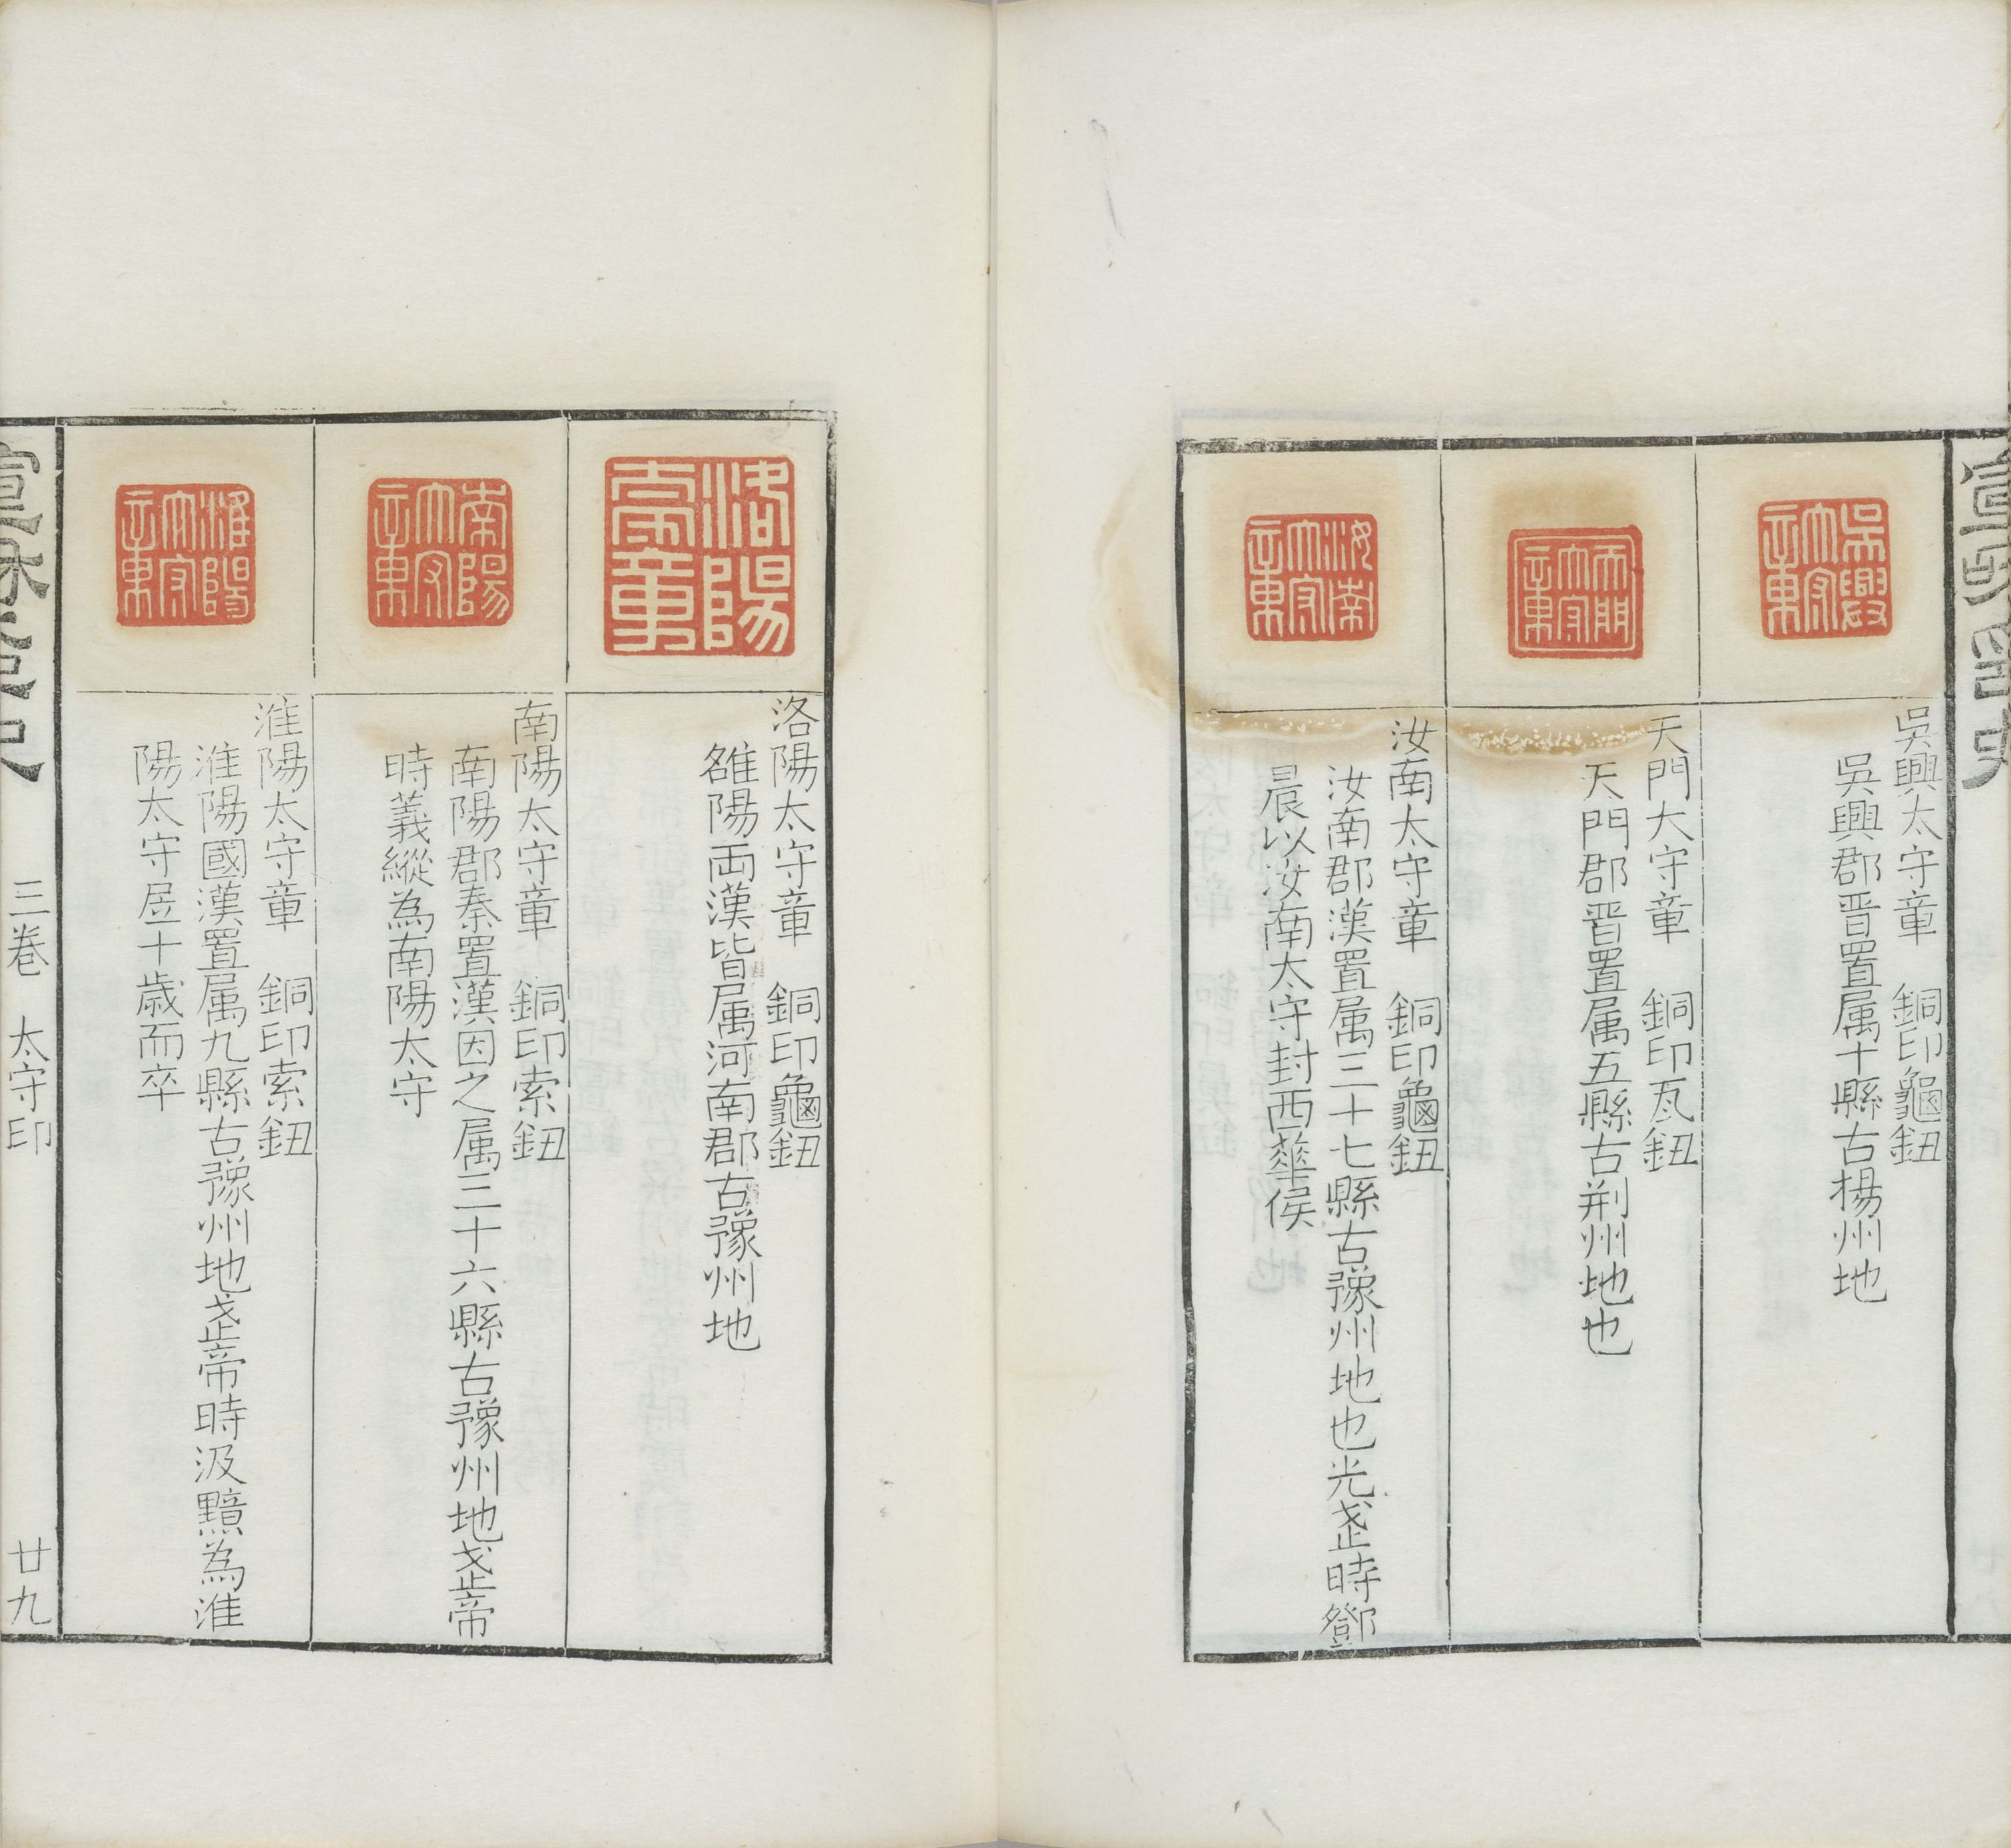 宣和印史
吳興太守章
吳興太守章　銅印龜鈕
吳興郡晋置属十縣古揚州地
天門太守章
天門大守章　銅印瓦鈕
天門郡晋置属五縣古荆州地也
汝南太守章
汝南太守章　銅印龜鈕
汝南郡漢置属三十七縣古豫州地也光武時鄧
晨以汝南太守封西華侯
洛陽章
洛陽太守章　銅印龜鈕
雒陽両漢皆属河南郡古豫州地
南陽太守章
南陽太守章　銅印索鈕
南陽郡秦置漢因之属三十六縣古豫州地武帝
時義縱為南陽太守
淮陽太守章
淮陽太守章　銅印索鈕
淮陽國漢置属九縣古豫州地武帝時汲黯為淮
陽太守居十歲而卒
宣和印史　三卷　太守印　廿九